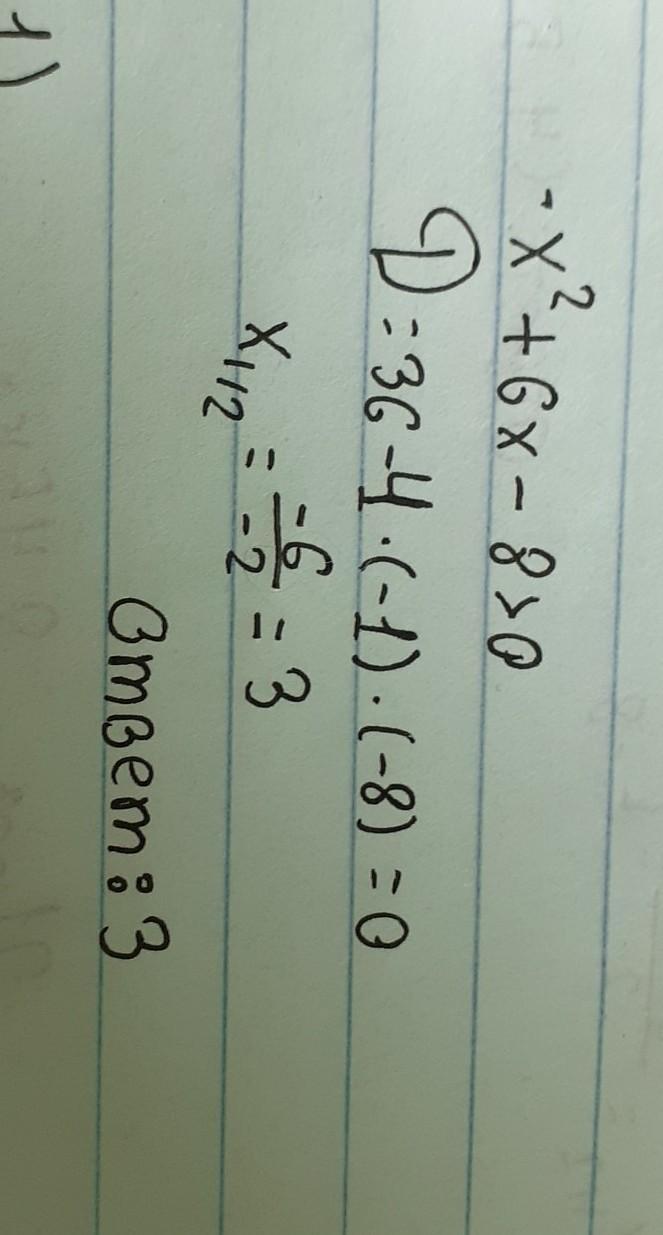 -x² + 6x - 8 > 0
D = 36 - 4 · (-1) · (-8) = 0
x₁,₂ = -6/-2 = 3
Ответ: 3
1)